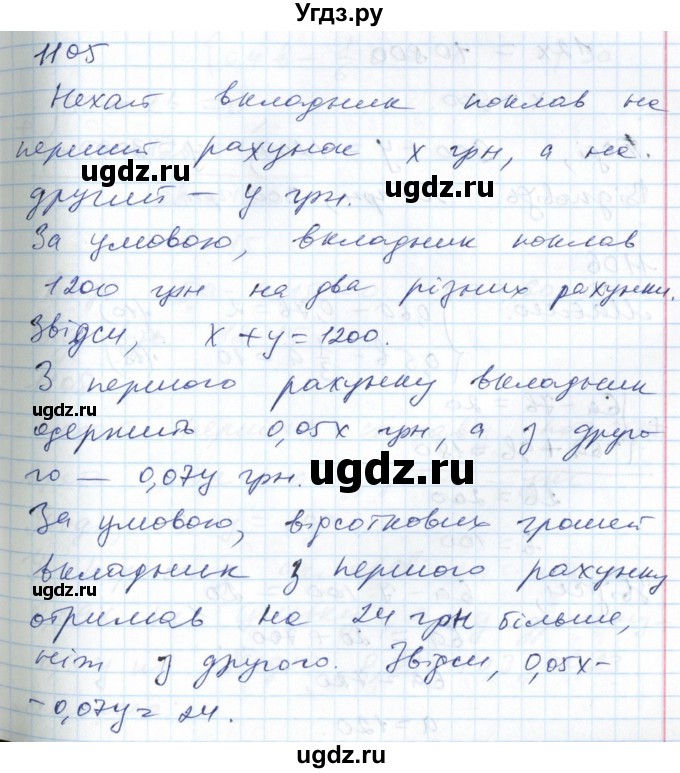 Угдз.ру
1105
Нехай вкладник поклав на
перший рахунок x грн, а на
другий – y грн.
За умовою, вкладник поклав
1200 грн на два різних рахунки.
Звідси, x + y = 1200.
З першого рахунку вкладник
одержить 0,05x грн, а з друго-
го — 0,07y грн.
За умовою, відсоткових грошей
вкладник з першого рахунку
отримав на 24 грн більше,
ніж з другого. Звідси, 0,05x-
-0,07y = 24.
ugdz.ru
ugdz.ru
ugdz.ru
ugdz.ru
ugdz.ru
ugdz.ru
ugdz.ru